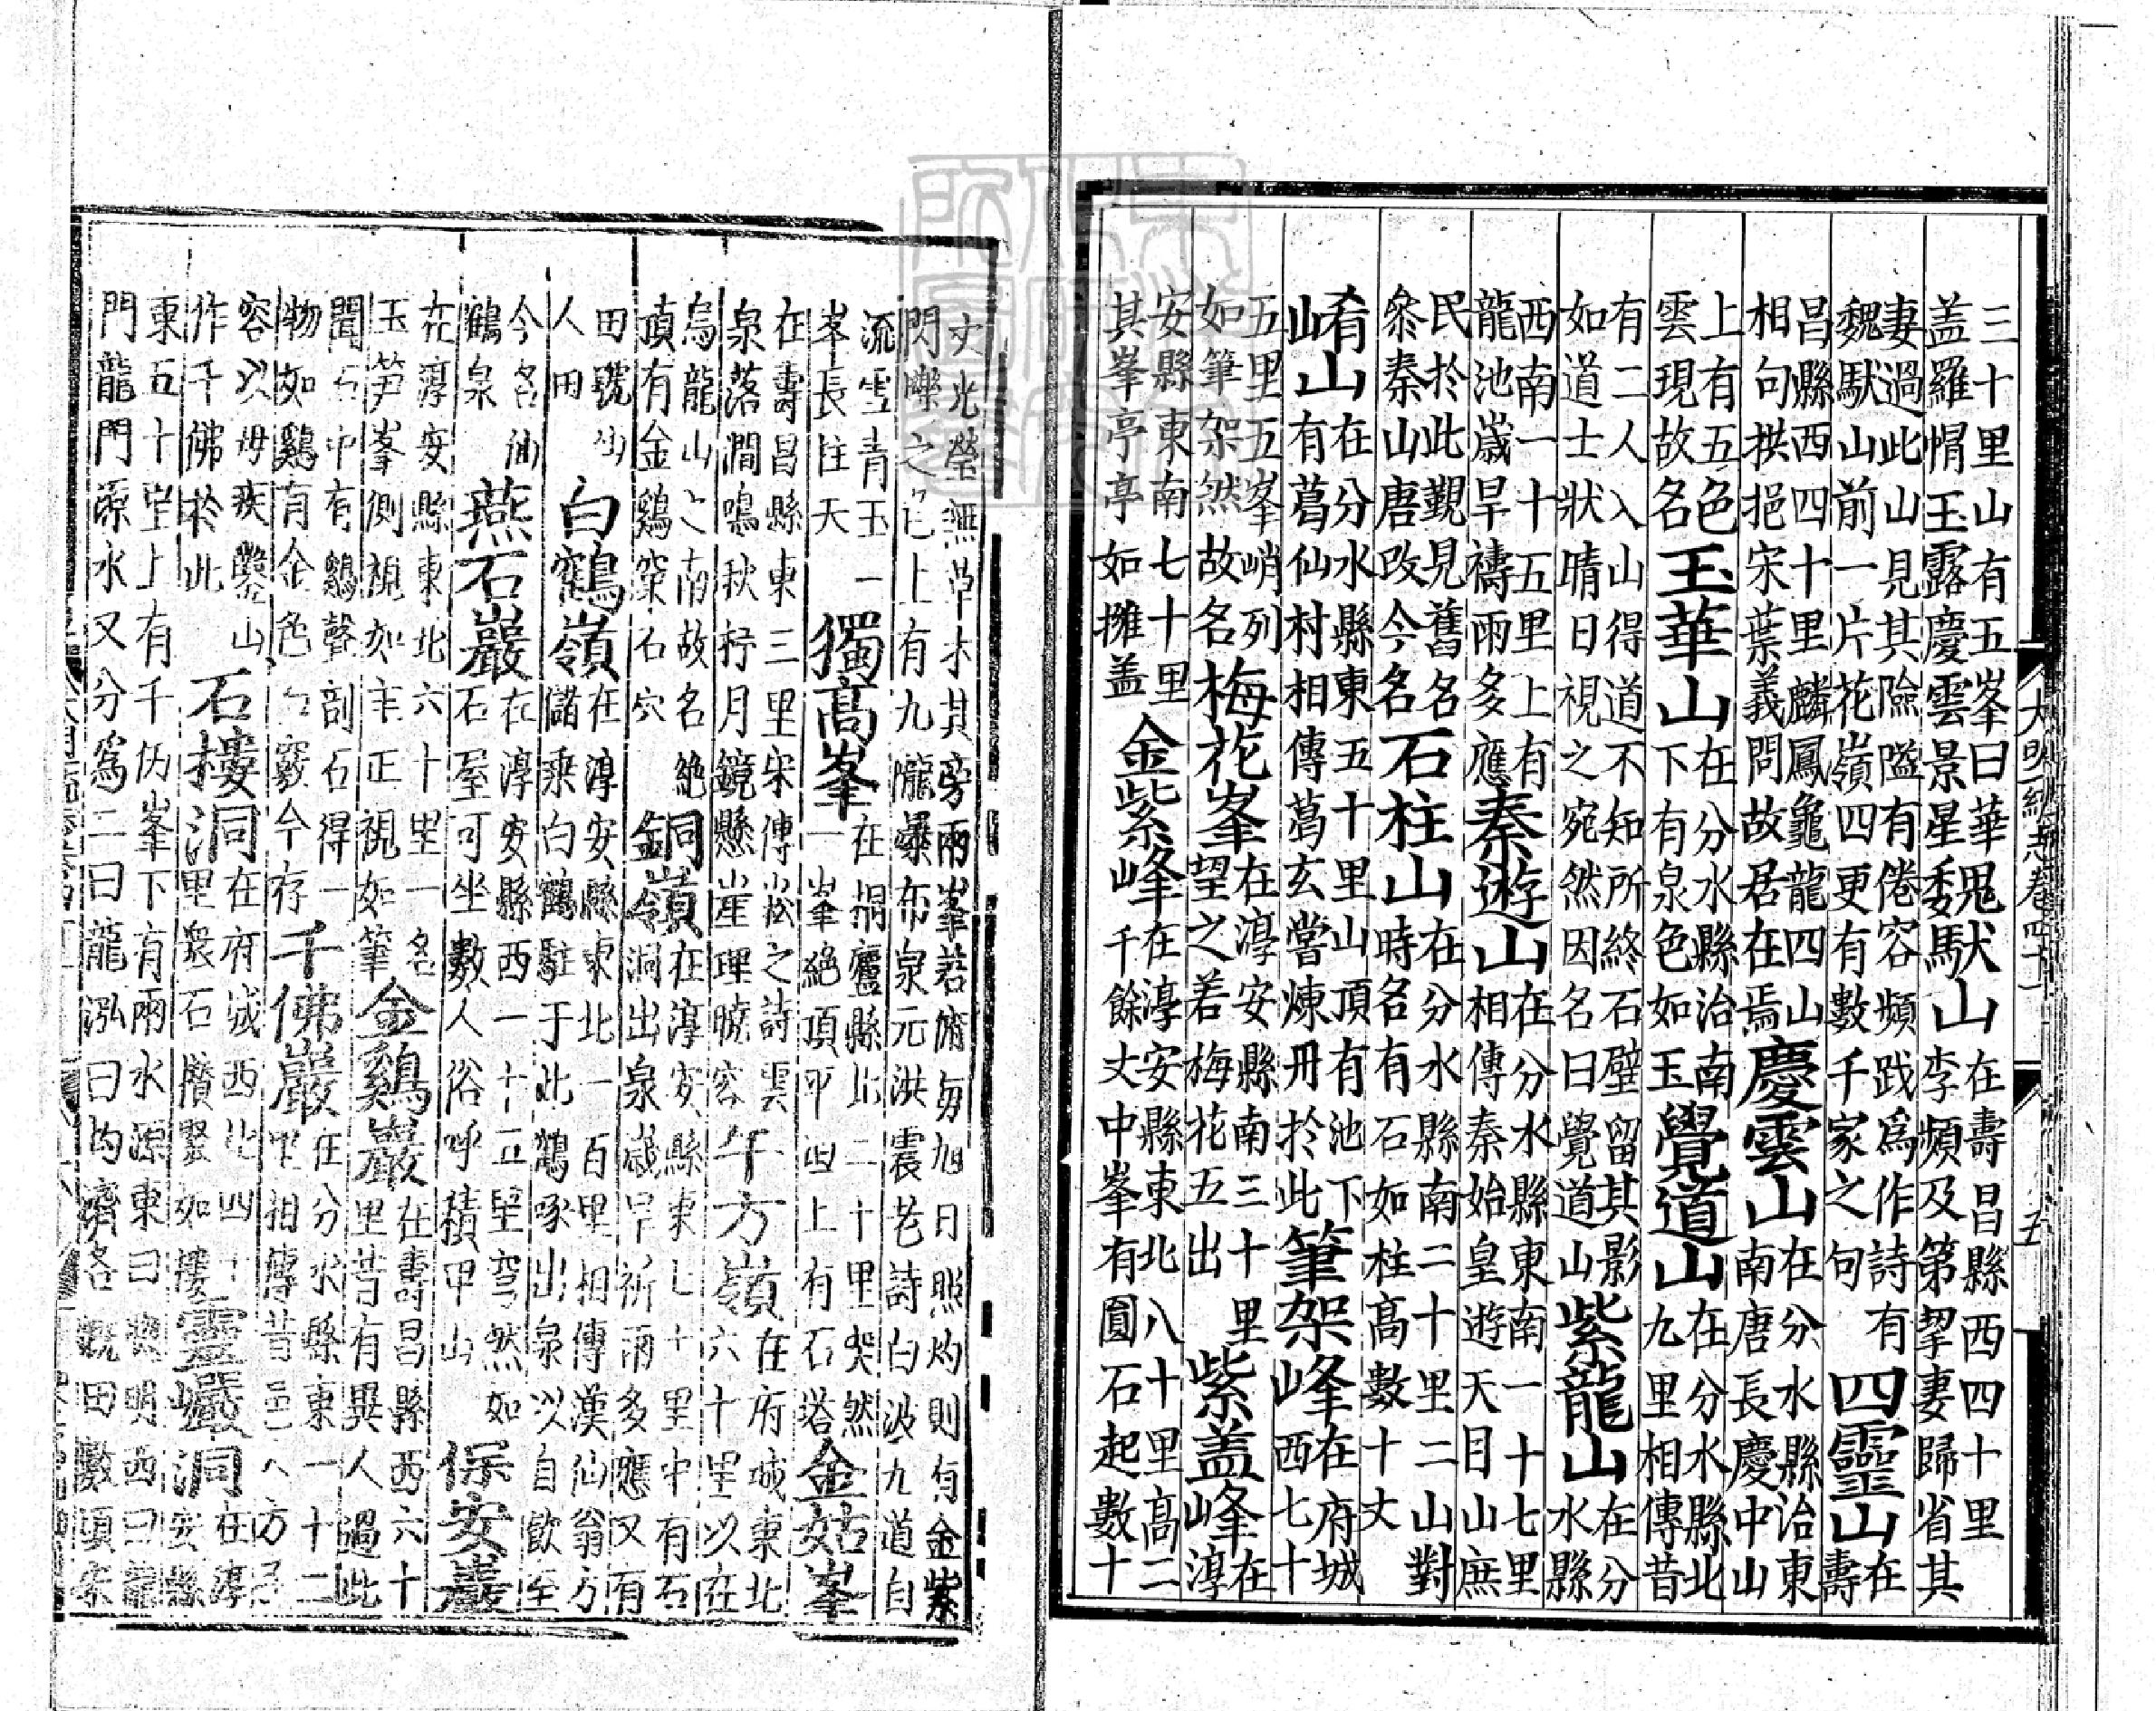 三十里山有五峯曰華盖羅㡌玉露慶雲景星魏馱山在壽昌縣西四十里李頻及第挈妻歸省其
妻過此山見其險隘有倦容頻戲爲作詩有魏馱山前一片花嶺四更有數千家之句四靈山在壽
昌縣西四十里麟鳳龜龍四山相向拱挹宋葉義問故居在焉慶雲山在分水縣治東南唐長慶中山
上有五色雲現故名玉華山在分水縣治南下有泉色如玉覺道山在分水縣北九里相傳昔
有二人入山得道不知所終石壁留其影如道士狀晴日視之宛然因名曰覺道山紫龍山在分水縣
西南一十五里上有龍池歲旱禱雨多應秦遊山在分水縣東南一十七里相傳秦始皇遊天目山庶
民於此觀見舊名叅秦山唐改今名石柱山在分水縣南二十里二山對時名有石如柱高數十丈
崤山在分水縣東五十里山頂有池下有葛仙村相傳葛玄嘗煉丹於此筆架峰在府城西七十
五里五峯峭列如筆架然故名梅花峯在淳安縣南三十里望之若梅花五出紫盖峰在淳
安縣東南七十里其峯亭亭如擁盖金紫峰在淳安縣東北八十里高二千餘丈中峯有圓石起數十
大明一統志卷四十一 五
丈光瑩無草木其旁兩峯若脩每旭日照灼則有金紫閃爍之色上有九隴瀑布泉元洪震老詩白波九道自
流雪青玉一峯長拄天獨高峯在桐廬縣北二十里突然一峯絶頂平田上有石塔金姑峯
在壽昌縣東三里宋傅崧之詩雲泉落澗鳴秋籽月鏡懸崖理曉容午方嶺在府城東北六十里以在
烏龍山之南故名絶頂有金鷄窠石穴銅嶺在淳安縣東七十里中有石洞出泉歲旱祈雨多應又有
田號仙人田白鶴嶺在淳安縣東北一百里相傳漢仙翁方儲乘白鶴駐于此鶴啄出泉以自飲至
今名仙鶴泉燕石巖在淳安縣西一十五里穹然如石屋可坐數人俗呼積甲山保安巖
在淳安縣東北六十里一名玉笋峯側視如圭正視如筆金鷄巖在壽昌縣西六十里昔有異人過此
聞石中有鷄聲剖石得一物如鷄有金色石竅今存千佛巖在分水縣東一十二里相傳昔邑人方
容以母疾鑿山作千佛於此石樓洞在府城西北四十里衆石攢聚如樓靈巖洞在淳安縣
東五十里上有千仞峯下有兩水源東曰明西曰龍門龍門源水又分爲二曰龍泓曰均濟各溉田數頃宋